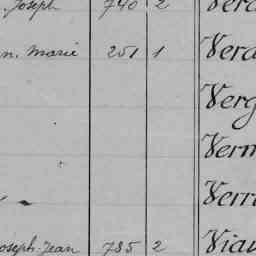 Joseph 740 2 Vera
n. Marie 251 1 Vera
Verg
Verm
Verr
oseph-Jean 785 2 Viau